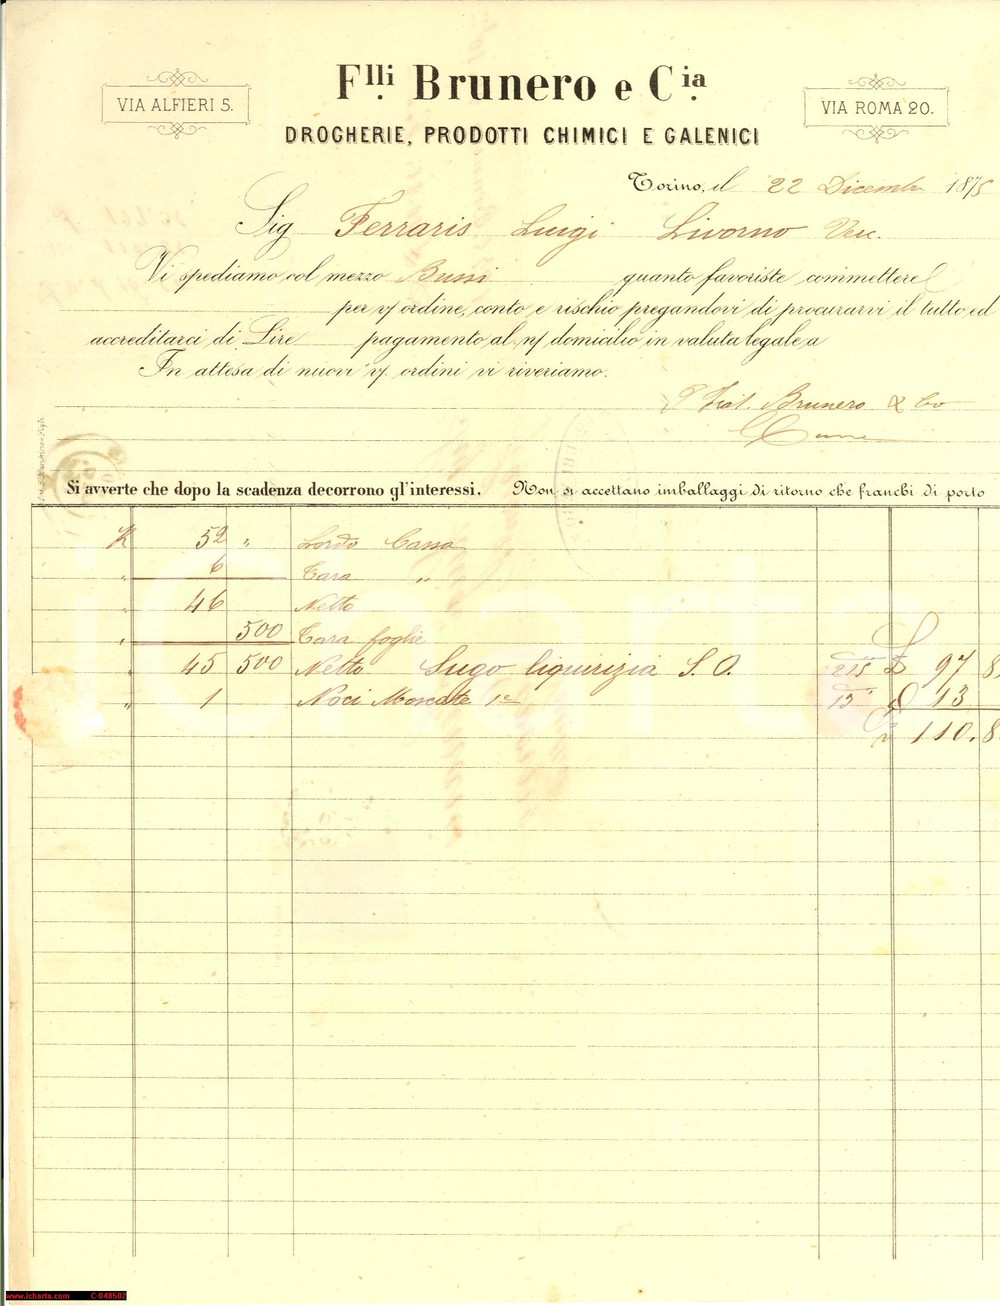 Flli. Brunero e Cia.
VIA ALFIERI 5.
VIA ROMA 20.
DROGHERIE, PRODOTTI CHIMICI E GALENICI
Torino, il 22 Dicembre 1875
Sig Ferraris Luigi Livorno Verc.
Vi spediamo col mezzo Bussi quanto favoriste commettere
per v/ ordine, conto e rischio pregandovi di procurarvi il tutto ed
accreditarci di Lire pagamento al n/ domicilio in valuta legale a
In attesa di nuovi v/. ordini vi riveriamo.
Frat. Brunero & Co
Si avverte che dopo la scadenza decorrono gl'interessi. Non si accettano imballaggi di ritorno che franchi di porto
K 52 " Lordo Cassa
" 6 Tara "
" 46 Netto
" 500 Tara foglie
" 45 500 Netto Sugo liquirizia S. O. 215 £ 97 8
" 1 Noci Moscate 1e 13 £ 13
110.8
www.icharta.com C-048502